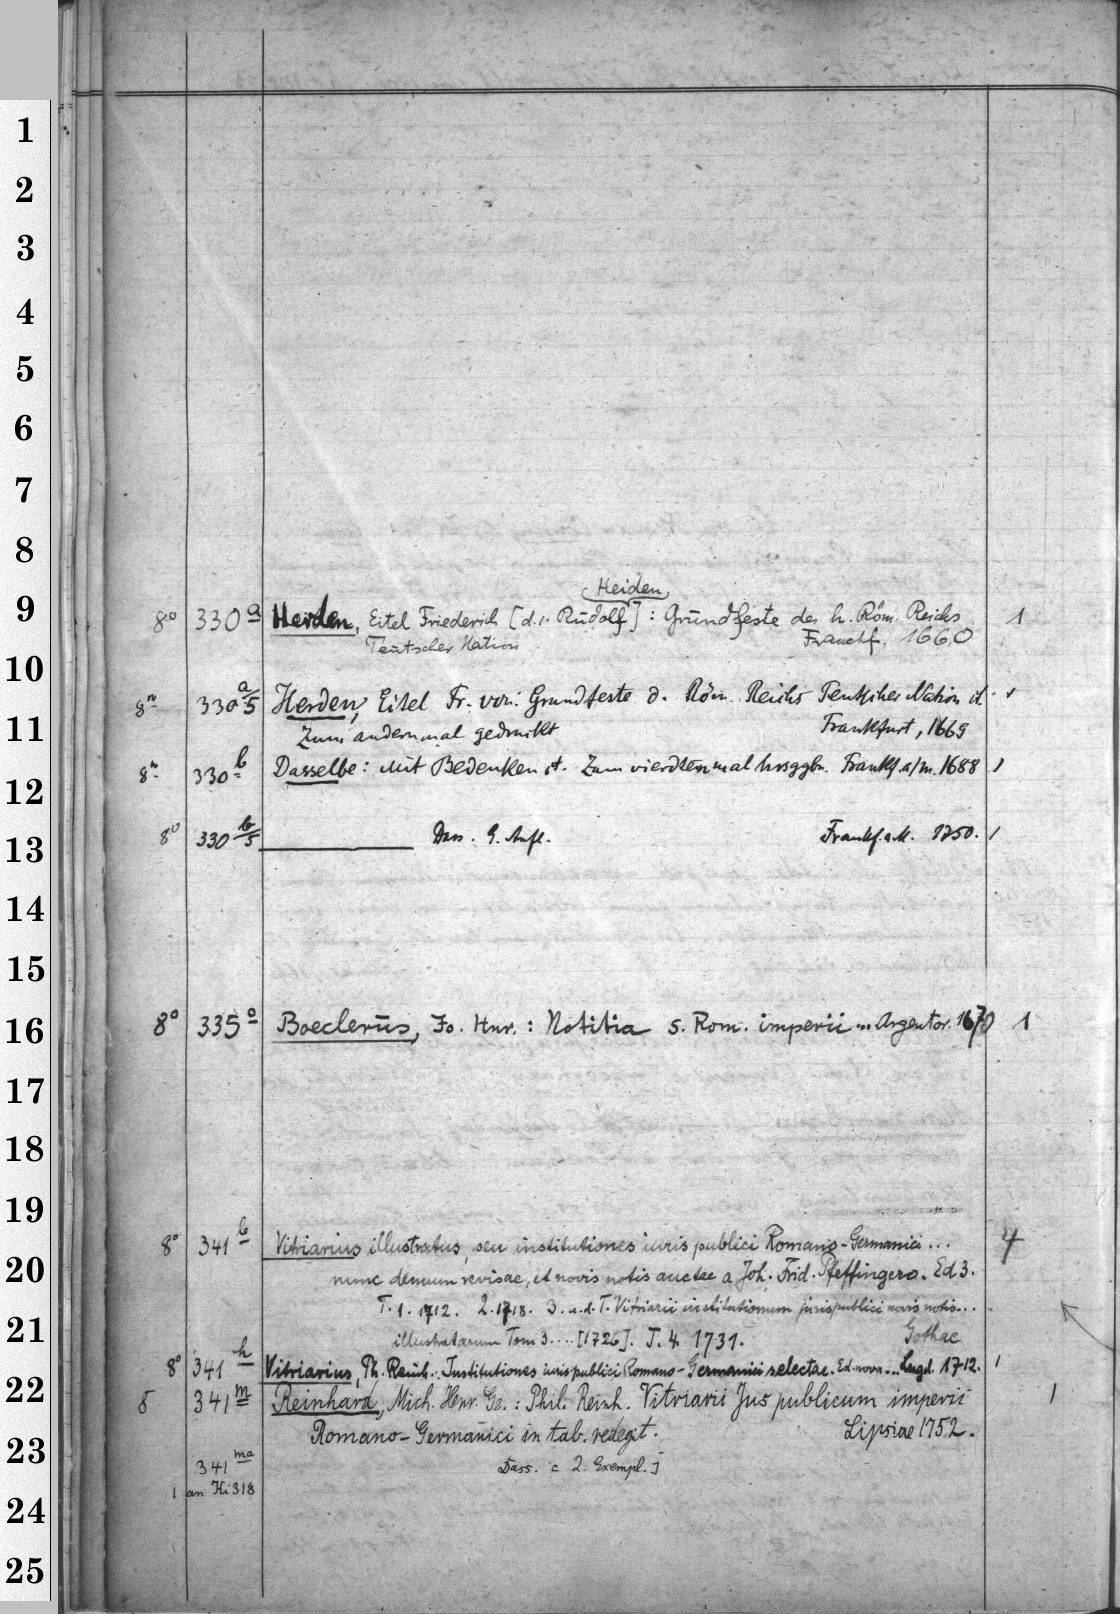 1
2
3
4
5
6
7
8
Heiden
9 8° 330 a Herden, Eitel Friederich [d. i. Rudolf]: Grundfeste des h. Röm. Reichs 1
Teutscher Nation Franckf. 1660
10
8° 330 a/5 Herden, Eitel Fr. von: Grundfeste d. Röm. Reichs Teutscher Nation
11 Zum andernmal gedruckt Frankfurt, 1669
8° 330 b Dasselbe: Mit Bedenken Zum vierdtenmal hrsggbn. Frankf. a/M. 1688 1
12
8° 330 b/5 Dass. 9. Aufl. Frankf. a. M. 1750. 1
13
14
15
16 8° 335 a Boeclerus, Jo. Hnr.: Notitia S. Rom. imperii ... Argentor. 1670 1
17
18
19
8° 341 b Vitriarius illustratus, seu institutiones iuris publici Romano-Germanici ... 4
20 nunc denuum revisae, et novis notis auctae a Joh. Frid. Pfeffingero. Ed 3.
T. 1. 1712. 2. 1718. 3. u. d. T. Vitriarii institutionum juris publici novis notis...
21 illustratarum Tom 3.... [1726]. T. 4. 1731. Gothae
8° 341 h Vitriarius, Ph. Reinh.: Institutiones iuris publici Romano-Germanici selectae. Ed. nova ... Lugd. 1712. 1
22 8 341 m Reinhard, Mich. Henr. Ge.: Phil. Reinh. Vitriarii Jus publicum imperii 1
Romano-Germanici in tab. redegit. Lipsiae 1752.
23 341 ma Dass. c 2. Exempl.]
1 an Hi 318
24
25